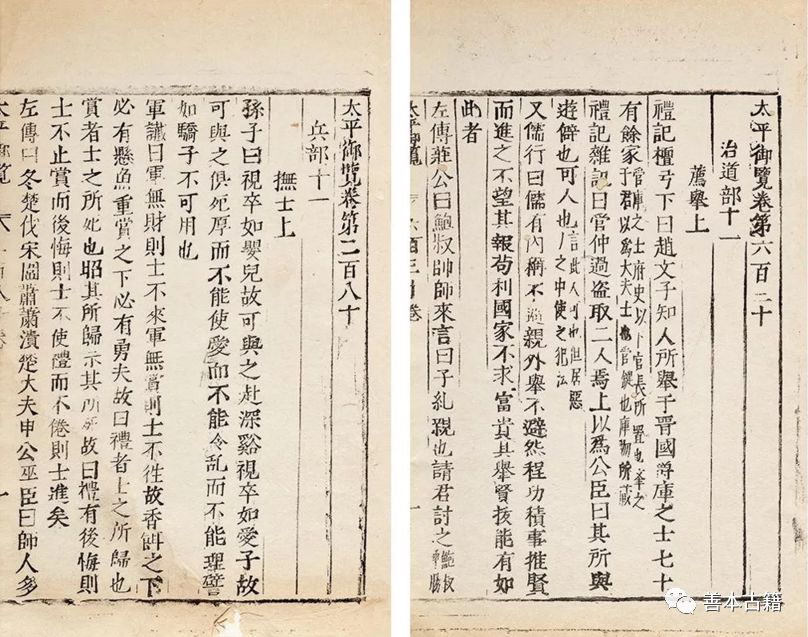 太平御覽卷第六百二十
治道部十一
薦舉上
禮記檀弓下曰趙文子知人所舉于晉國管庫之士七十
有餘家管庫之士府史以下官長所置也舉之
于君以爲大夫士也管鍵也庫物所藏
禮記雜記曰管仲遇盜取二人焉上以爲公臣曰其所與
遊僻也可人也言此人可也但居惡
人之中使之犯法
又儒行曰儒有內稱不避親外舉不避怨程功積事推賢
而進之不望其報苟利國家不求富貴其舉賢援能有如
此者
左傳莊公曰鮑叔帥師來言曰子糾親也請君討之鮑叔
乘勝
太平御覽 六百三十卷 一
太平御覽卷第二百八十
兵部十一
撫士上
孫子曰視卒如嬰兒故可與之赴深谿視卒如愛子故
可與之俱死厚而不能使愛而不能令亂而不能理譬
如驕子不可用也
軍讖曰軍無財則士不來軍無賞則士不往故香餌之下
必有懸魚重賞之下必有勇夫故曰禮者士之所歸也
賞者士之所死也昭其所歸示其所死故曰禮有後悔則
士不止賞而後悔則士不使禮而不倦則士進矣
左傳曰冬楚伐宋圍蕭蕭潰楚大夫申公巫臣曰師人多
太平御覽 卷 一
善本古籍